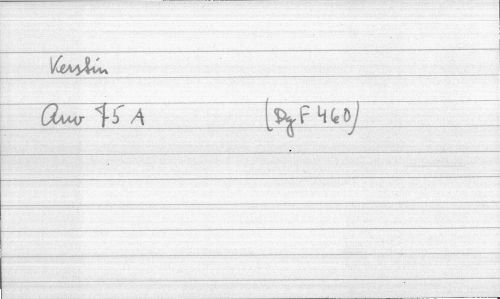 Kerstin
Arw 75 A (DgF 460)